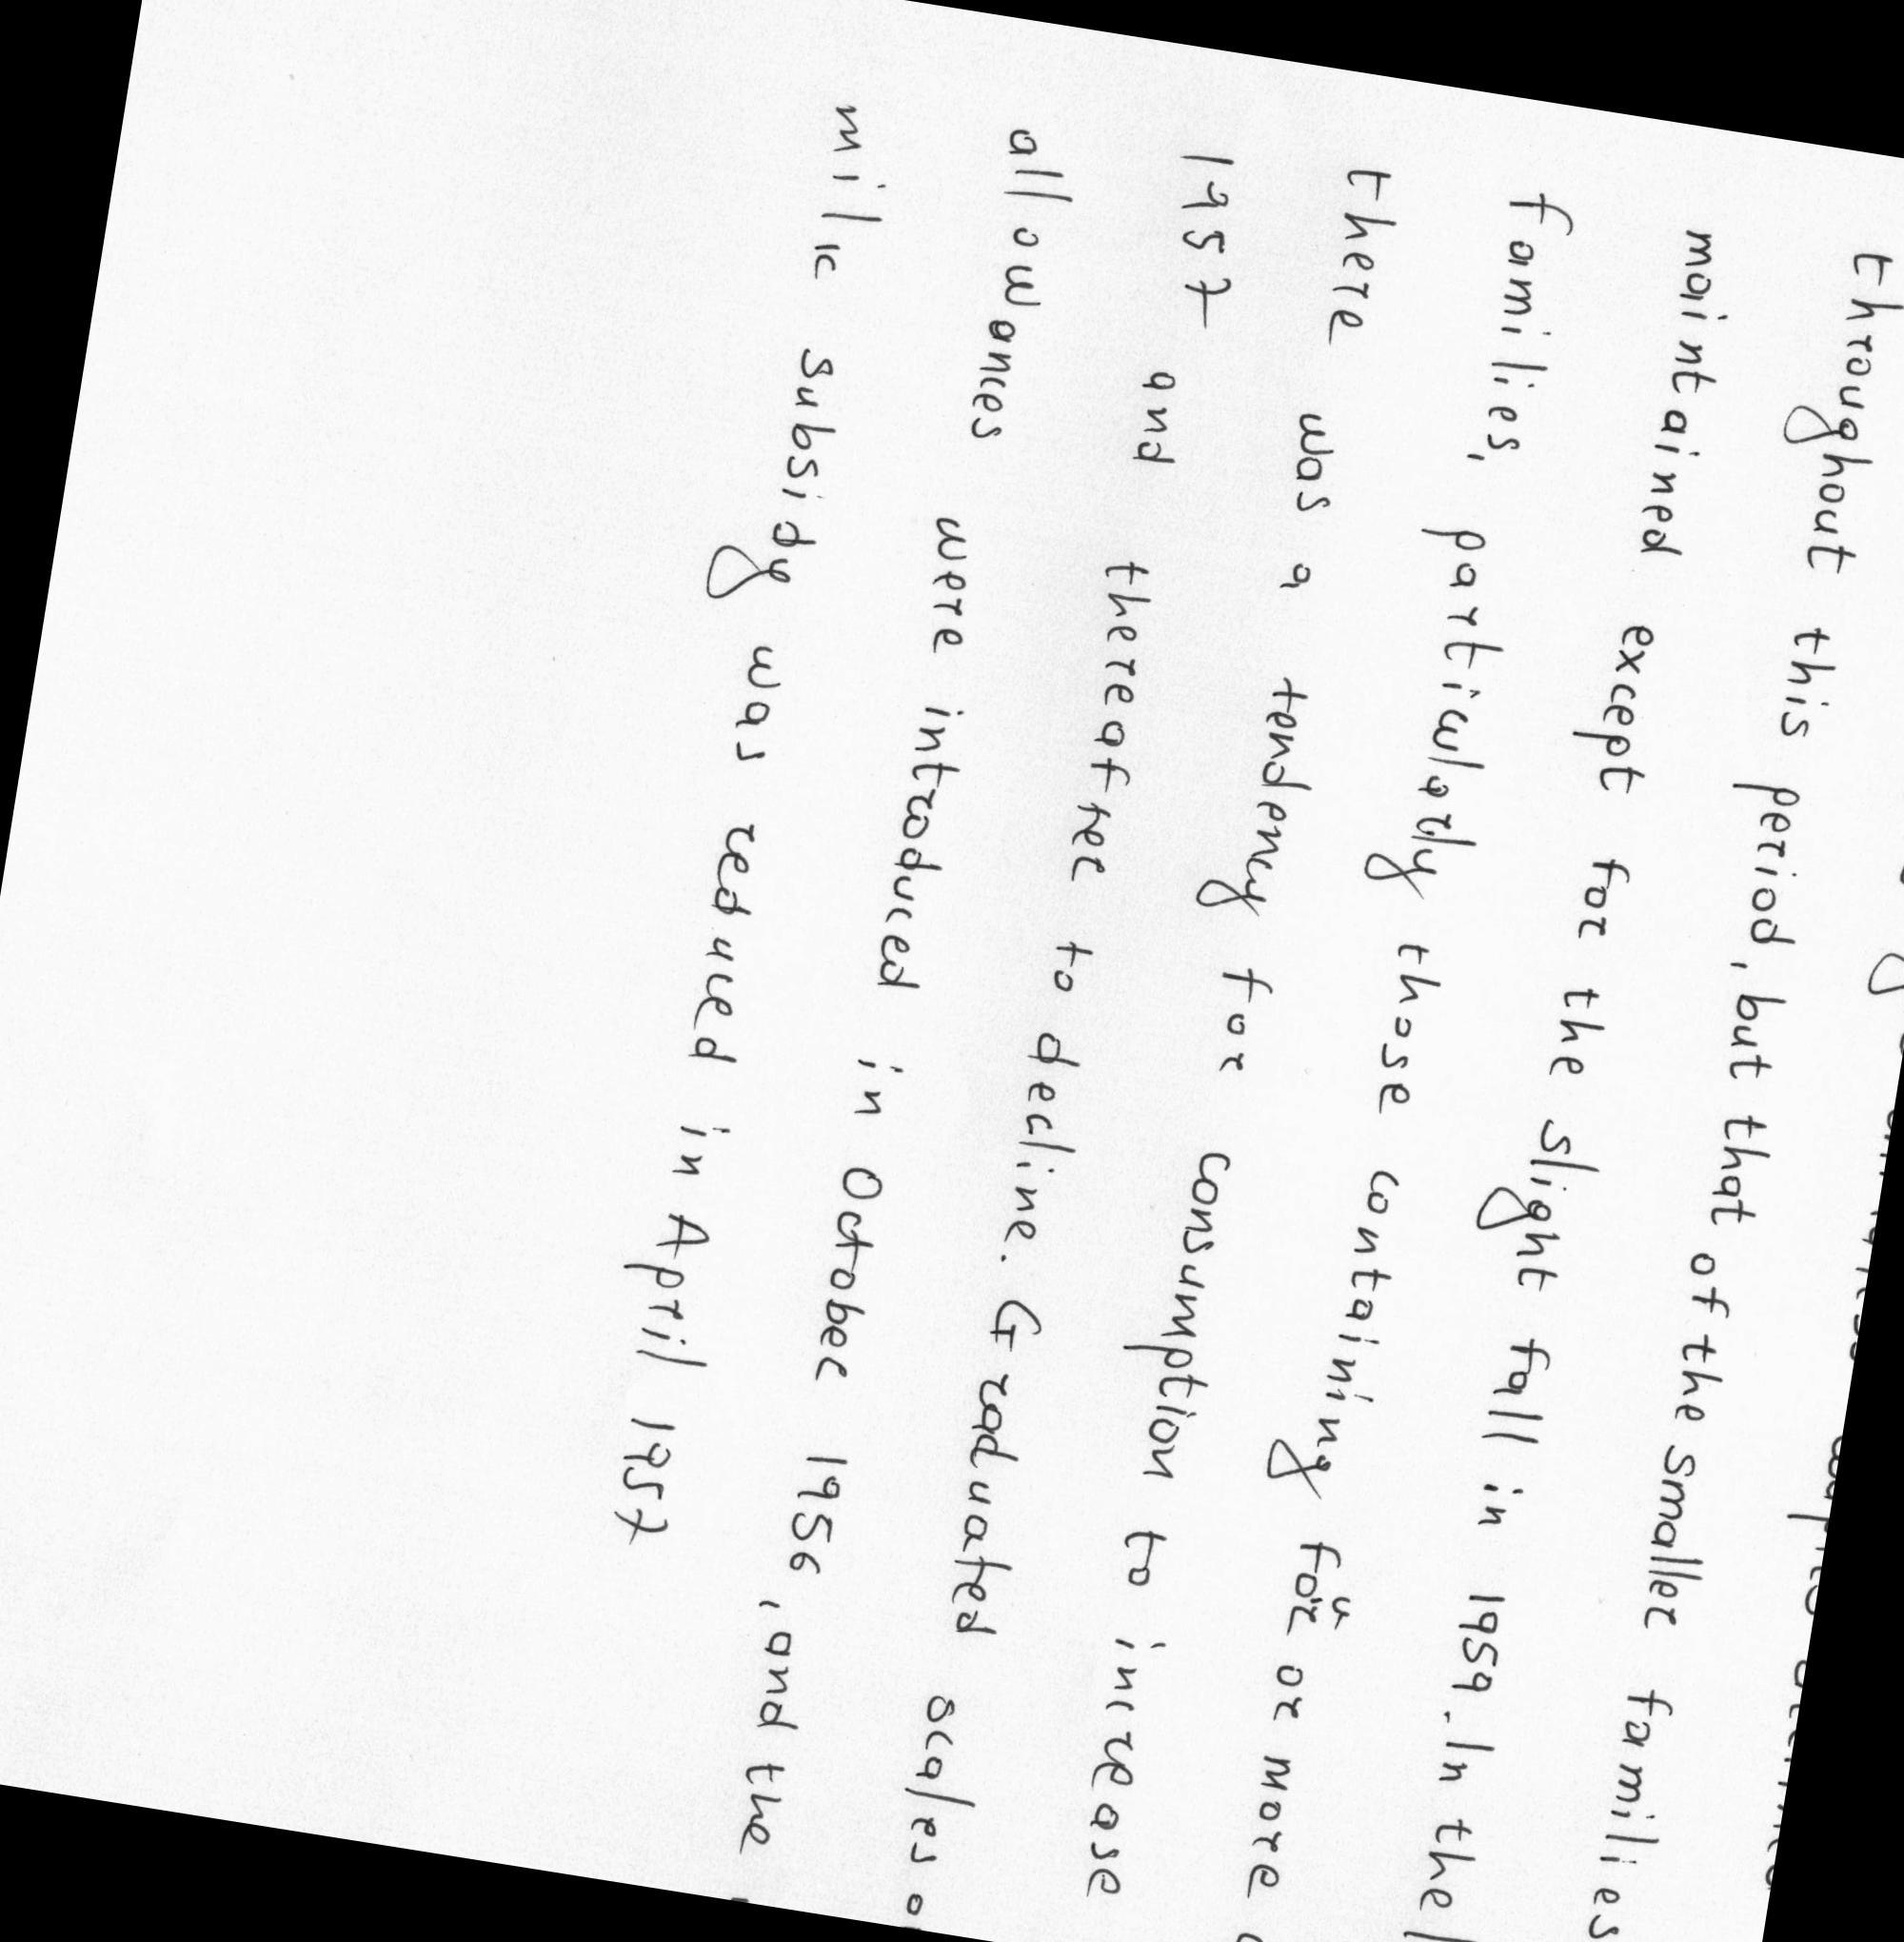 throughout this period, but that of the smaller families
maintained except for the slight fall in 1959. In the
families, particularly those containing four or more
there was a tendency for consumption to increase
1957 and thereafter to decline. Graduated scales
allowances were introduced in October 1956, and the
milk subsidy was reduced in April 1957